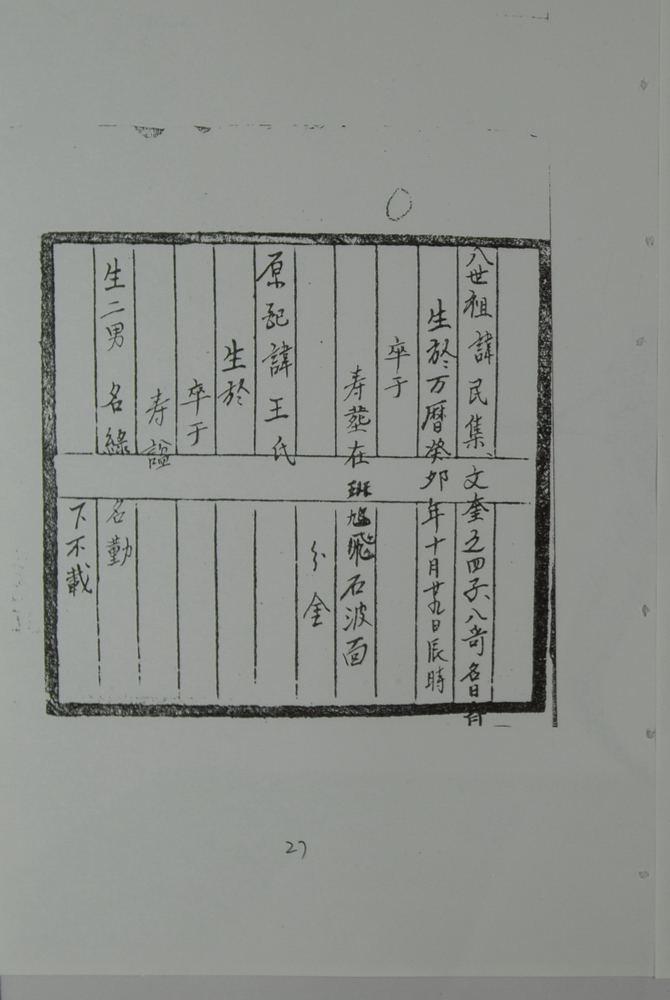 八世祖諱民集、文奎之四子、八奇名日
生於万曆癸卯年十月廿九日辰時
卒于
寿塟在斑鳩飛石波面
分金
原配諱王氏
生於
卒于
寿諡
生二男 名綠 名勤
下不載
27